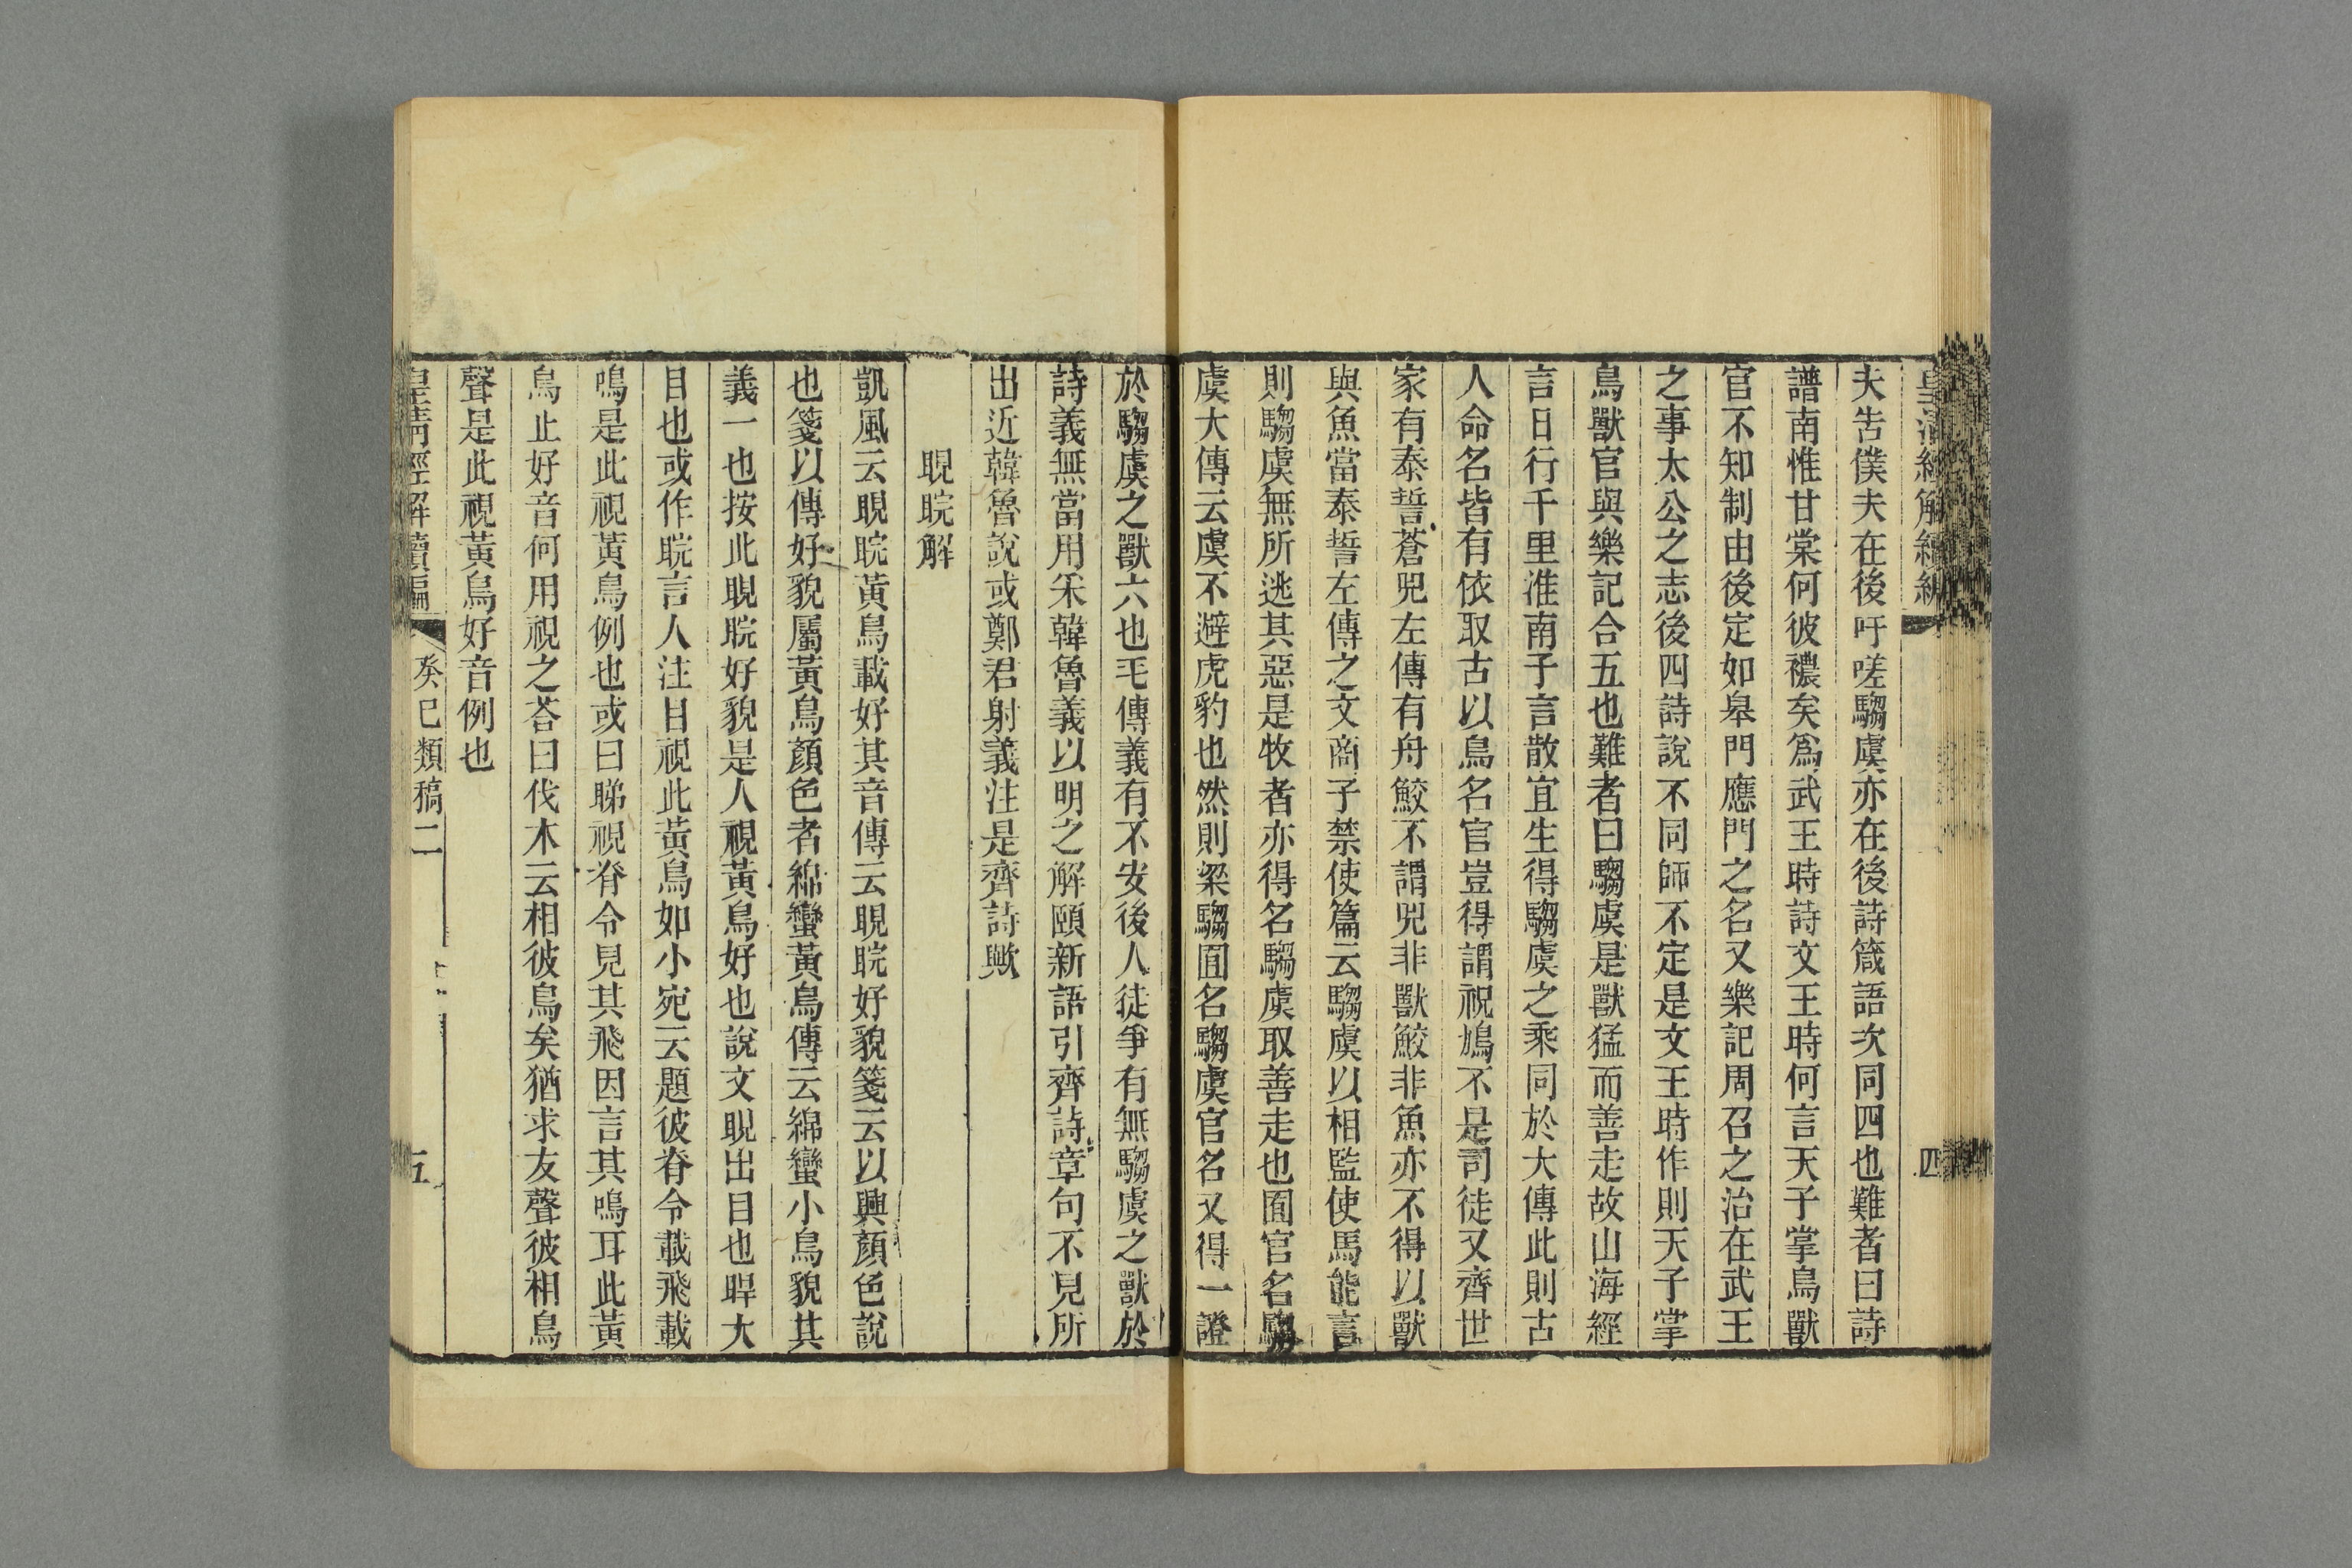 皇清經解續編 四
夫吿僕夫在後吁嗟騶虞亦在後詩箴語次同四也難者曰詩
譜南惟甘棠何彼襛矣爲武王時詩文王時何言天子掌鳥獸
官不知制由後定如皋門應門之名又樂記周召之治在武王
之事太公之志後四詩說不同師不定是文王時作則天子掌
鳥獸官與樂記合五也難者曰騶虞是獸猛而善走故山海經
言日行千里淮南子言散宜生得騶虞之乘同於大傳此則古
人命名皆有依取古以鳥名官豈得謂祝鳩不是司徒又齊世
家有泰誓蒼兕左傳有舟鮫不謂兕非獸鮫非魚亦不得以獸
與魚當泰誓左傳之文商子禁使篇云騶虞以相監使馬能言
則騶虞無所逃其惡是牧者亦得名騶虞取善走也囿官名騶
虞大傳云虞不避虎豹也然則梁騶囿名騶虞官名又得一證
於騶虞之獸六也毛傳義有不安後人徒爭有無騶虞之獸於
詩義無當用采韓魯義以明之解頤新語引齊詩章句不見所
出近韓魯說或鄭君射義注是齊詩歟
睍睆解
凱風云睍睆黃鳥載好其音傳云睍睆好貌箋云以興顏色說
也箋以傳好貌屬黃鳥顏色者綿蠻黃鳥傳云綿蠻小鳥貌其
義一也按此睍睆好貌是人視黃鳥好也說文睍出目也睅大
目也或作睆言人注目視此黃鳥如小宛云題彼脊令載飛載
鳴是此視黃鳥例也或曰睇視脊令見其飛因言其鳴耳此黃
鳥止好音何用視之荅曰伐木云相彼鳥矣猶求友聲彼相鳥
聲是此視黃鳥好音例也
皇清經解續編 癸巳類稿二 五